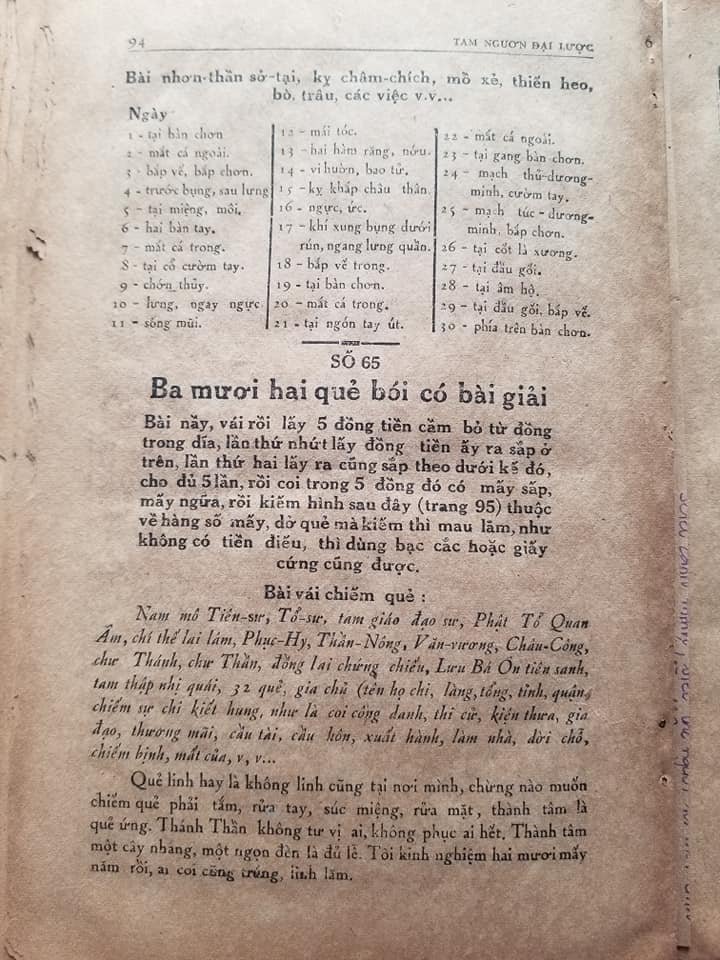 94
TAM NGƯƠN ĐẠI LƯỢC
6
Bài nhơn-thần sở-tại, kỵ châm-chích, mổ xẻ, thiến heo,
bò, trâu, các việc v.v...
Ngày
1 - tại bàn chơn
2 - mắt cá ngoài.
3 - bắp vế, bắp chơn.
4 - trước bụng, sau lưng
5 - tại miệng, môi.
6 - hai bàn tay.
7 - mắt cá trong.
8 - tại cổ cườm tay.
9 - chớn thủy.
10 - lưng, ngay ngực
11 - sống mũi.
12 - mái tóc.
13 - hai hàm răng, nớu.
14 - vi huờn, bao tử.
15 - kỵ khắp châu thân.
16 - ngực, ức.
17 - khí xung bụng dưới
rún, ngang lưng quần.
18 - bắp vế trong.
19 - tại bàn chơn.
20 - mắt cá trong.
21 - tại ngón tay út.
22 - mắt cá ngoài.
23 - tại gang bàn chơn.
24 - mạch thủ-dương-
minh, cườm tay.
25 - mạch túc-dương-
minh, bắp chơn.
26 - tại cốt là xương.
27 - tại đầu gối.
28 - tại âm hộ.
29 - tại đầu gối, bắp vế.
30 - phía trên bàn chơn.
SỐ 65
Ba mươi hai quẻ bói có bài giải
Bài nầy, vái rồi lấy 5 đồng tiền cầm bỏ từ đồng
trong dĩa, lần thứ nhứt lấy đồng tiền ấy ra sắp ở
trên, lần thứ hai lấy ra cũng sắp theo dưới kế đó,
cho đủ 5 lần, rồi coi trong 5 đồng đó có mấy sấp,
mấy ngữa, rồi kiếm hình sau đây (trang 95) thuộc
về hàng số mấy, dở quẻ mà kiếm thì mau lắm, như
không có tiền điếu, thì dùng bạc cắc hoặc giấy
cứng cũng được.
Bài vái chiếm quẻ :
Nam mô Tiên-sư, Tổ-sư, tam giáo đạo sư, Phật Tổ Quan
Âm, chí thế lai lâm, Phục-Hy, Thần-Nông, Văn-vương, Châu-Công,
chư Thánh, chư Thần, đồng lai chứng chiếu, Lưu Bá Ôn tiên sanh,
tam thập nhị quái, 32 quẻ, gia chủ (tên họ chi, làng, tổng, tỉnh, quận
chiếm sự chi kiết hung, như là coi công danh, thi cử, kiện thưa, gia
đạo, thương mãi, cầu tài, cầu hôn, xuất hành, làm nhà, dời chỗ,
chiếm bịnh, mất của, v, v...
Quẻ linh hay là không linh cũng tại nơi mình, chừng nào muốn
chiếm quẻ phải tắm, rửa tay, súc miệng, rửa mặt, thành tâm là
quẻ ứng. Thánh Thần không tư vị ai, không phục ai hết. Thành tâm
một cây nhang, một ngọn đèn là đủ lễ. Tôi kinh nghiệm hai mươi mấy
năm rồi, ai coi cũng trúng, linh lắm.